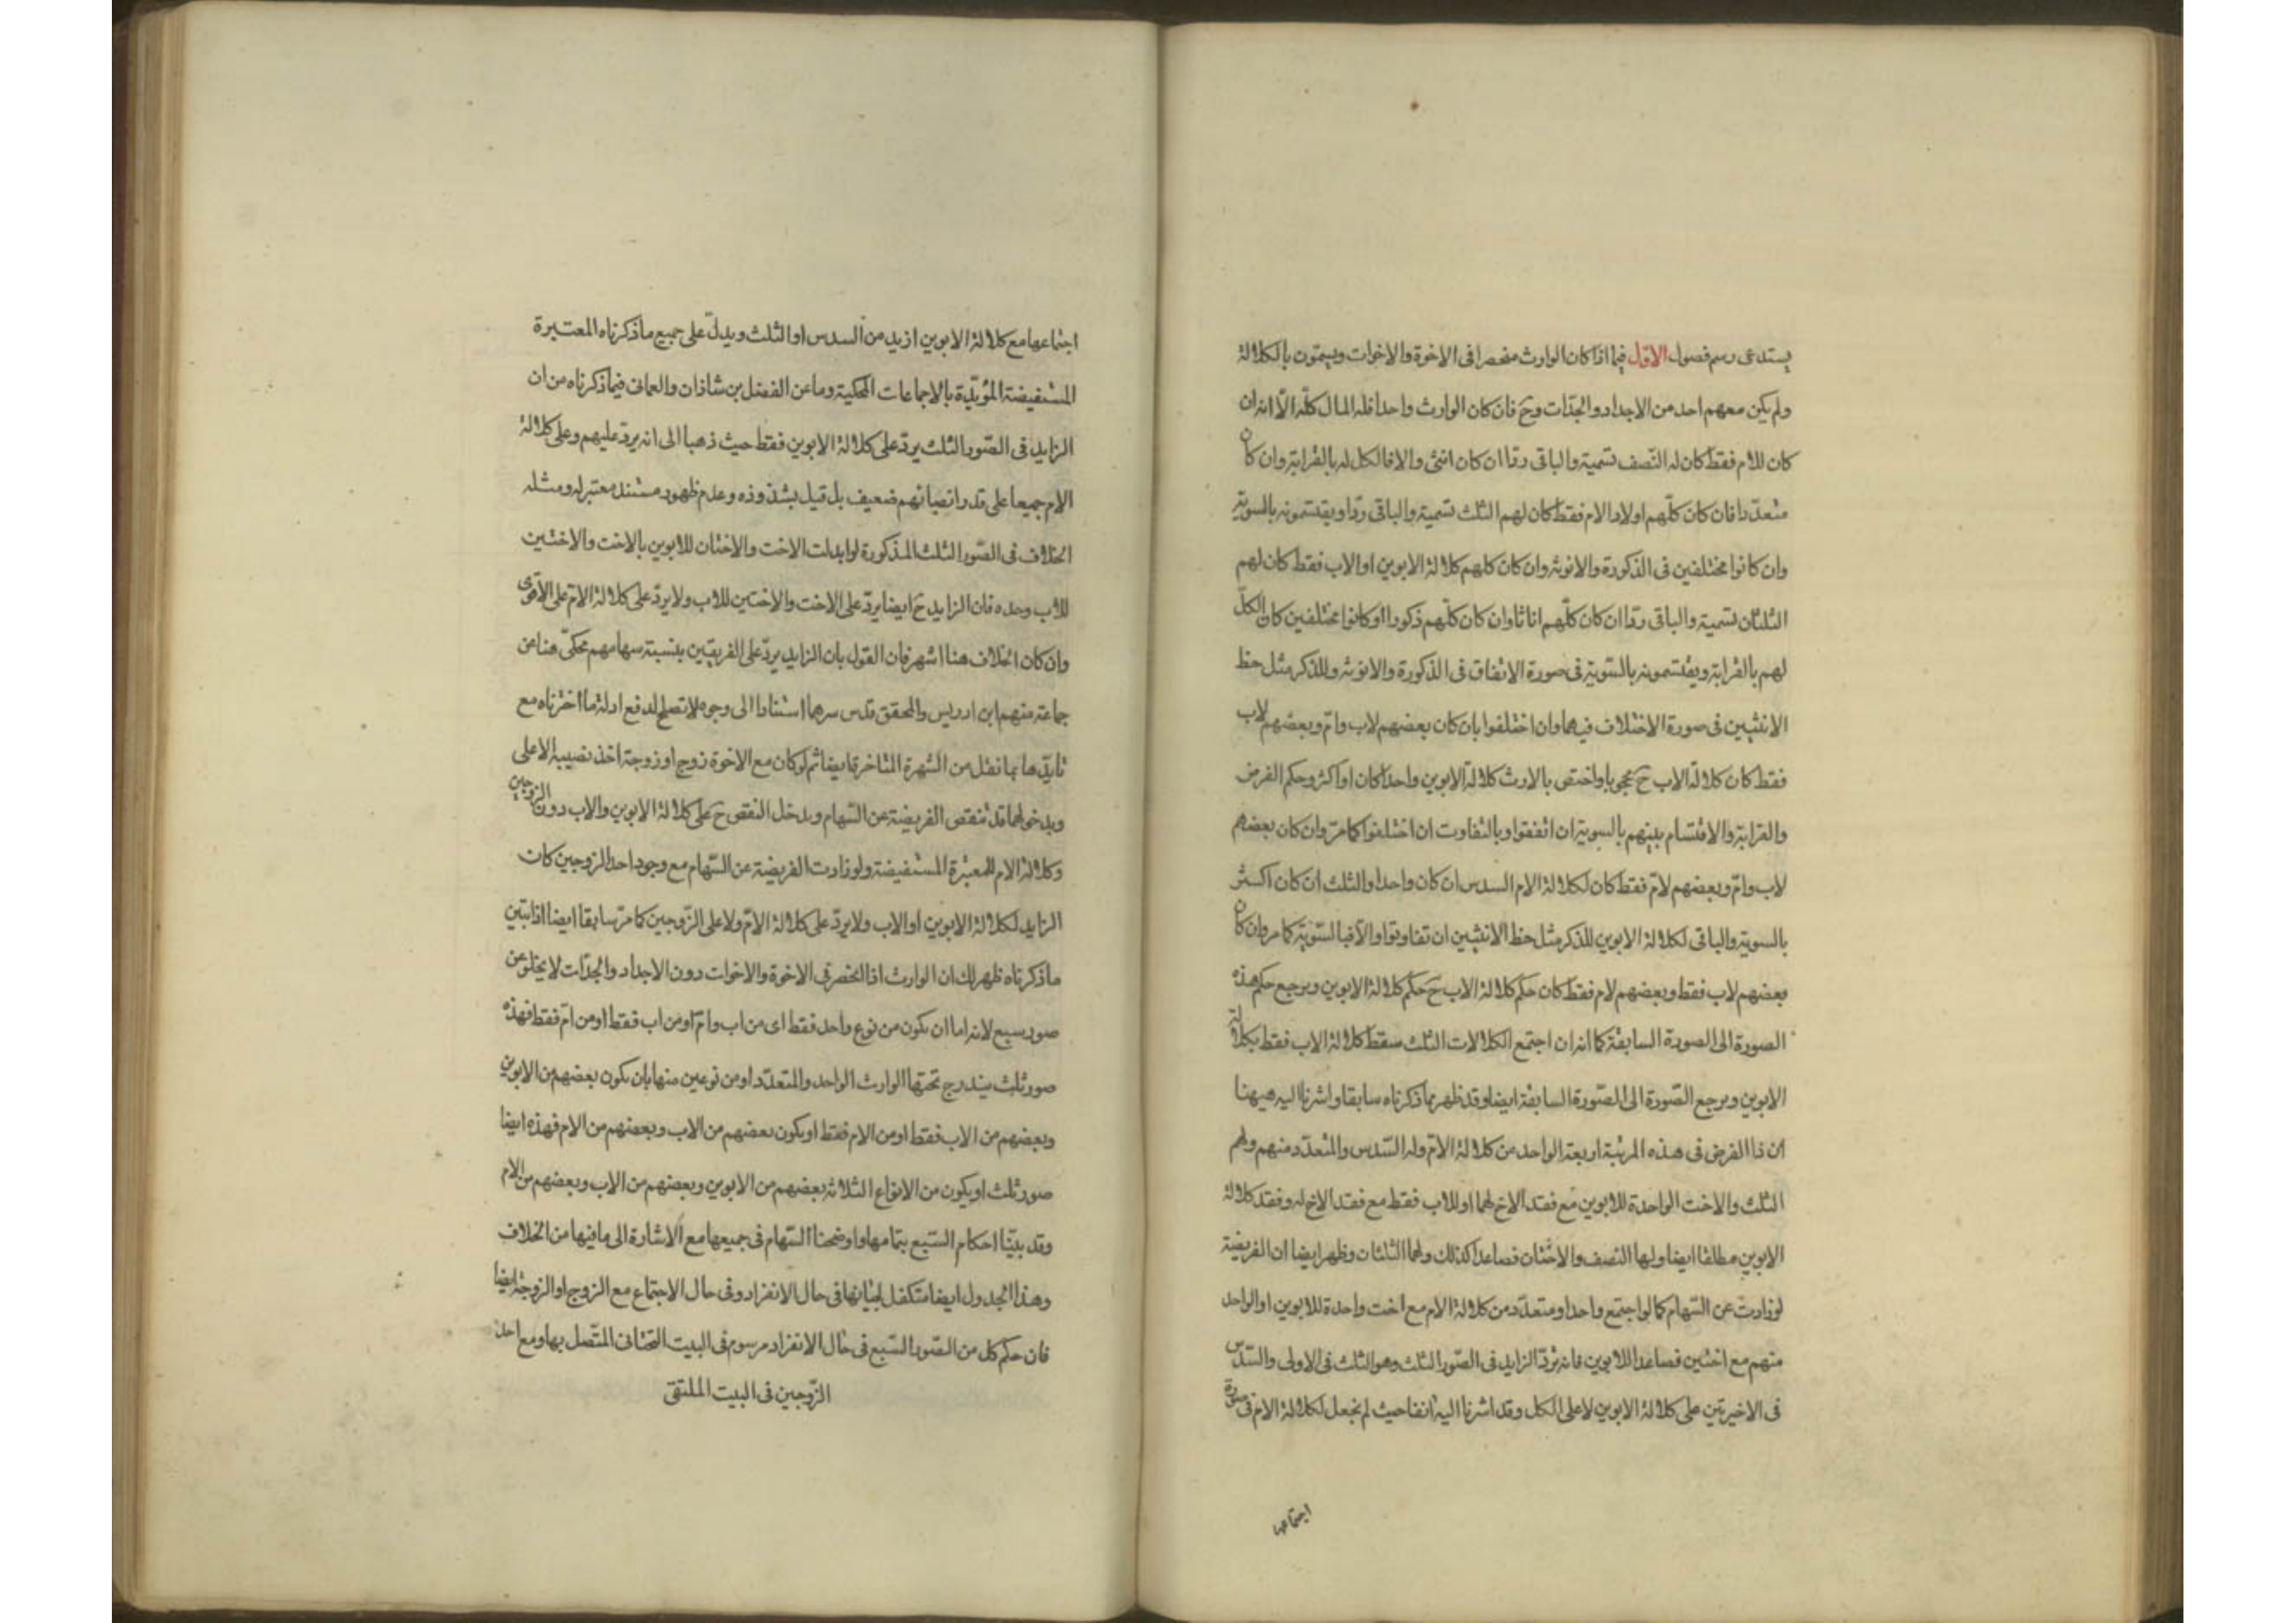 يستدعى رسم فصول الاوّل فيما اذا كان الوارث منحصرا فى الاخوة والاخوات ويسمّون بالكلالة
ولم يكن معهم احد من الاجداد والجدّات وحَ فان كان الوارث واحدا فله المال كلّه الّا انه ان
كان للام فقط كان له النّصف تسمية والباقى ردّا ان كان انثى والا فالكل له بالقرابة وان كان
متعدّدا فان كان كلّهم اولاد الام فقط كان لهم الثلث تسمية والباقى ردّا ويقتسمونه بالسويّة
وان كانوا مختلفين فى الذكورة والانوثة وان كان كلهم كلالة الابوين او الاب فقط كان لهم
الثلثان تسمية والباقى ردّا ان كان كلّهم اناثا وان كان كلّهم ذكورا او كانوا مختلفين كان الكلّ
لهم بالقرابة ويقتسمونه بالسّويّة فى صورة الاتفاق فى الذكورة والانوثة وللذكر مثل حظ
الانثيين فى صورة الاختلاف فيهما وان اختلفوا بان كان بعضهم لاب وامّ وبعضهم لاب
فقط كان كلالة الاب حَ محجوبا واختص بالارث كلالة الابوين واحدا كان او اكثر وحكم الفرض
والقرابة والاقتسام بينهم بالسوية ان اتفقوا وبالتفاوت ان اختلفوا كما مرّ وان كان بعضهم
لاب وامّ وبعضهم لامّ فقط كان لكلالة الام السدس ان كان واحدا والثلث ان كان اكثر
بالسوية والباقى لكلالة الابوين للذكر مثل حظ الانثيين ان تفاوتوا والّا فبالسّويّة كما مر وان كان
بعضهم لاب فقط وبعضهم لام فقط كان حكم كلالة الاب حَ حكم كلالة الابوين ويرجع حكم هذه
الصورة الى الصورة السابقة كما انه ان اجتمع الكلالات الثلث سقط كلالة الاب فقط بكلالة
الابوين ويرجع الصّورة الى الصّورة السابقة ايضا وقد ظهر بما ذكرناه سابقا واشرنا اليه هيهنا
ان ذا الفرض فى هذه المرتبة اربعة الواحد من كلالة الامّ وله السّدس والمتعدّد منهم ولهم
الثلث والاخت الواحدة للابوين مع فقد الاخ لهما او للاب فقط مع فقد الاخ له وفقد كلالة
الابوين مطلقا ايضا ولها النصف والاختان فصاعدا كذلك ولهما الثلثان وظهر ايضا ان الفريضة
لو زادت عن السّهام كما لو اجتمع واحد او متعدّد من كلالة الام مع اخت واحدة للابوين او الواحد
منهم مع اختين فصاعدا للابوين فانه تردّ الزايد فى الصّور الثلث وهو الثلث فى الاولى والسّدس
فى الاخيرتين على كلالة الابوين لا على الكل وقد اشرنا اليه آنفا حيث لم نجعل لكلالة الام فى صورة
اجتماعها
اجتماعها مع كلالة الابوين ازيد من السدس او الثلث ويدلّ على جميع ما ذكرناه المعتبرة
المستفيضة المؤيّدة بالاجماعات المحكية وما عن الفضل بن شاذان والعمانى فيما ذكرناه من ان
الزايد فى الصّور الثلث يردّ على كلالة الابوين فقط حيث ذهبا الى انه يردّ عليهم وعلى كلالة
الام جميعا على قدر انصبائهم ضعيف بل قيل بشذوذه وعدم ظهور مستند معتبر له ومثله
الخلاف فى الصّور الثلث المذكورة لو ابدلت الاخت والاختان للابوين بالاخت والاختين
للاب وحده فان الزايد حَ ايضا يردّ على الاخت والاختين للاب ولا يردّ على كلالة الامّ على الاقوى
وان كان الخلاف هنا اشهر فان القول بان الزايد يردّ على الفريقين بنسبة سهامهم محكىّ هنا عن
جماعة منهم ابن ادريس والمحقق قدس سرهما استنادا الى وجوه لا تصلح لدفع ادلة ما اخترناه مع
تايّدها بما نقل من الشهرة المتاخرة ايضا ثم لو كان مع الاخوة زوج او زوجة اخذ نصيبه الاعلى
وبدخولهما قد تنقص الفريضة عن السّهام ويدخل النقص حَ على كلالة الابوين والاب دون الزوجين
وكلالة الام للمعتبرة المستفيضة ولو زادت الفريضة عن السّهام مع وجود احد الزوجين كان
الزايد لكلالة الابوين او الاب ولا يردّ على كلالة الامّ ولا على الزّوجين كما مرّ سابقا ايضا اذا تبيّن
ما ذكرناه ظهر لك ان الوارث اذا انحصر فى الاخوة والاخوات دون الاجداد والجدّات لا يخلو عن
صور سبع لانه اما ان يكون من نوع واحد فقط اى من اب وامّ او من اب فقط او من امّ فقط فهذه
صور ثلث يندرج تحتها الوارث الواحد والمتعدّد او من نوعين منها بان يكون بعضهم من الابوين
وبعضهم من الاب فقط او من الام فقط او يكون بعضهم من الاب وبعضهم من الام فهذه ايضا
صور ثلث او يكون من الانواع الثلاثة بعضهم من الابوين وبعضهم من الاب وبعضهم من الام
وقد بيّنّا احكام السّبع بتمامها واوضحنا السّهام فى جميعها مع الاشارة الى ما فيها من الخلاف
وهذا الجدول ايضا متكفل لبيانها فى حال الانفراد وفى حال الاجتماع مع الزوج او الزوجة ايضا
فان حكم كل من الصّور السّبع فى حال الانفراد مرسوم فى البيت التحتانى المتّصل بها ومع احد
الزّوجين فى البيت الملتقى